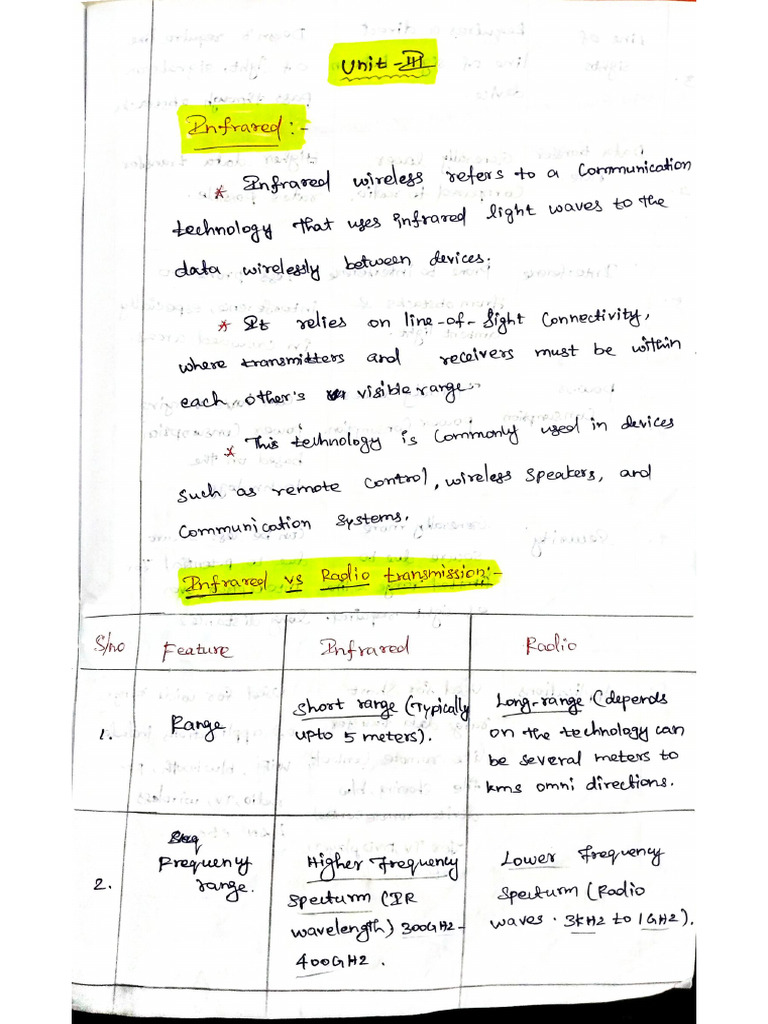 Unit-III
Infrared:-
* Infrared wireless refers to a Communication
technology that uses infrared light waves to the
data wirelessly between devices.
* It relies on line-of-Sight Connectivity,
where transmitters and receivers must be within
each other's visible range.
* This technology is Commonly used in devices
Such as remote Control, wireless Speakers, and
Communication Systems.
Infrared vs Radio transmission:-
S/no Feature Infrared Radio
1. Range
Short range (Typically
upto 5 meters).
Long-range (depends
on the technology can
be several meters to
kms omni directions.
2. Frequency
range.
Higher Frequency
Specturm (IR
wavelength) 300GHz-
400GHz.
Lower Frequency
Specturm (Radio
waves. 3kHz to 1GHz).